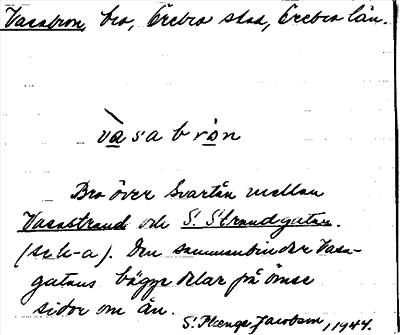 Vasabron, bro, Örebro stad, Örebro län.
vàsabròn
Bro över Svartån mellan
Vasastrand och S. Strandgatan.
(se k-a). Den sammanbinder Vasa-
gatans bägge delar på ömse
sidor om ån.
S. Plenge Jacobson, 1944.